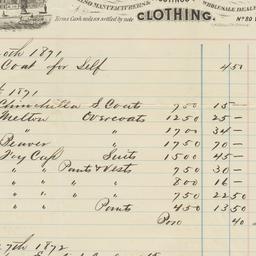 AND MANUFACTURERS &
WHOLESALE DEALER
CLOTHING.
Terms Cash unless settled by note
No 80
1871
Coat for Self 450
1871
Chinchilla S. Coats 750 15 —
Melton Overcoats 1250 25 —
" " 1700 34 —
Beaver " 1750 70 —
Fcy Cass Suits 1500 45 —
" " Pants & Vests 750 30 —
" " " 800 16 —
" " " 750 22 50
" " Pants 450 13 50
40
7th 1872